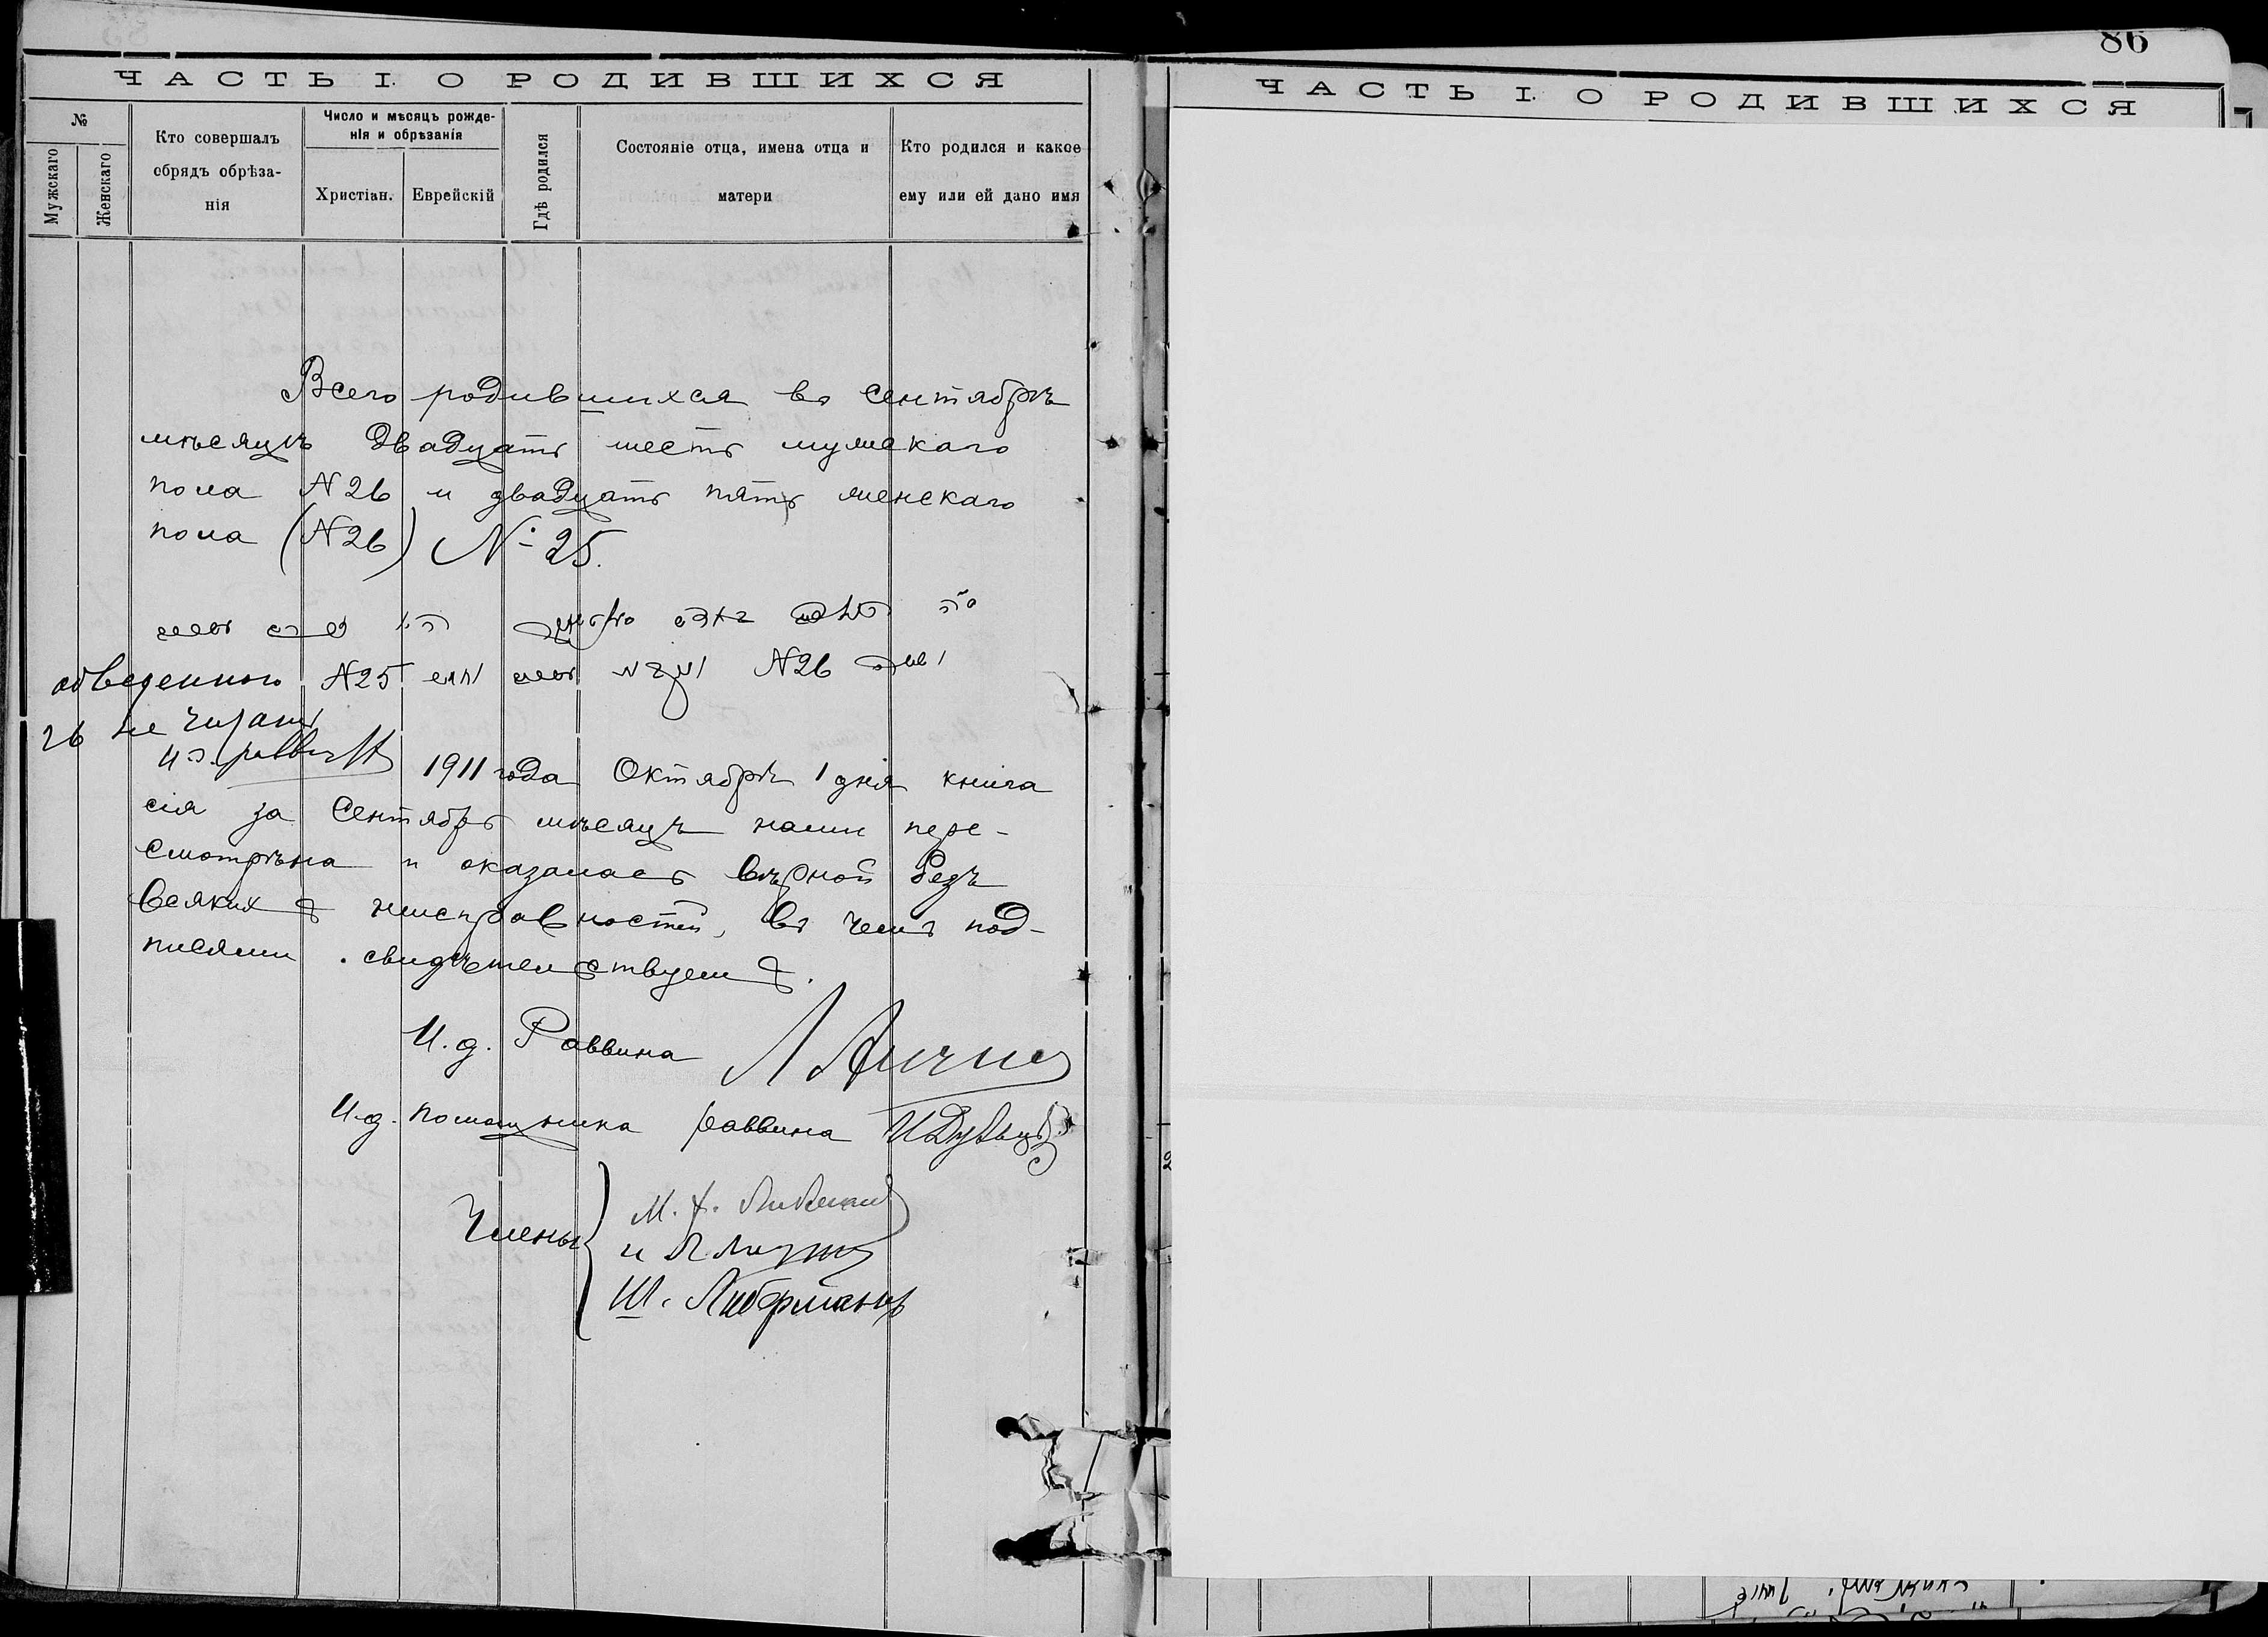 86
ЧАСТЬ I. О РОДИВШИХСЯ
№
Мужскаго
Женскаго
Кто совершалъ
обрядъ обрѣза-
нія
Число и мѣсяцъ рожде-
нія и обрѣзанія
Христіан.
Еврейскій
Гдѣ родился
Состояніе отца, имена отца и
матери
Кто родился и какое
ему или ей дано имя
Всего родившихся въ сентябрѣ
мѣсяцѣ двадцать шесть мужскаго
пола N26 и двадцать пять женскаго
пола (N26) №25.
обведенного N25 N26
26 не читать
1911 года Октября 1 дня книга
сія за Сентябрь мѣсяцъ нами пере-
смотрѣна и оказалась вѣрной безъ
всякихъ неисправностей, въ чемъ под-
писями свидѣтельствуемъ.
И. д. Раввина
И. д. помощника раввина
Члены
М.
и
Ш. Либерманъ
ЧАСТЬ I. О РОДИВШИХСЯ